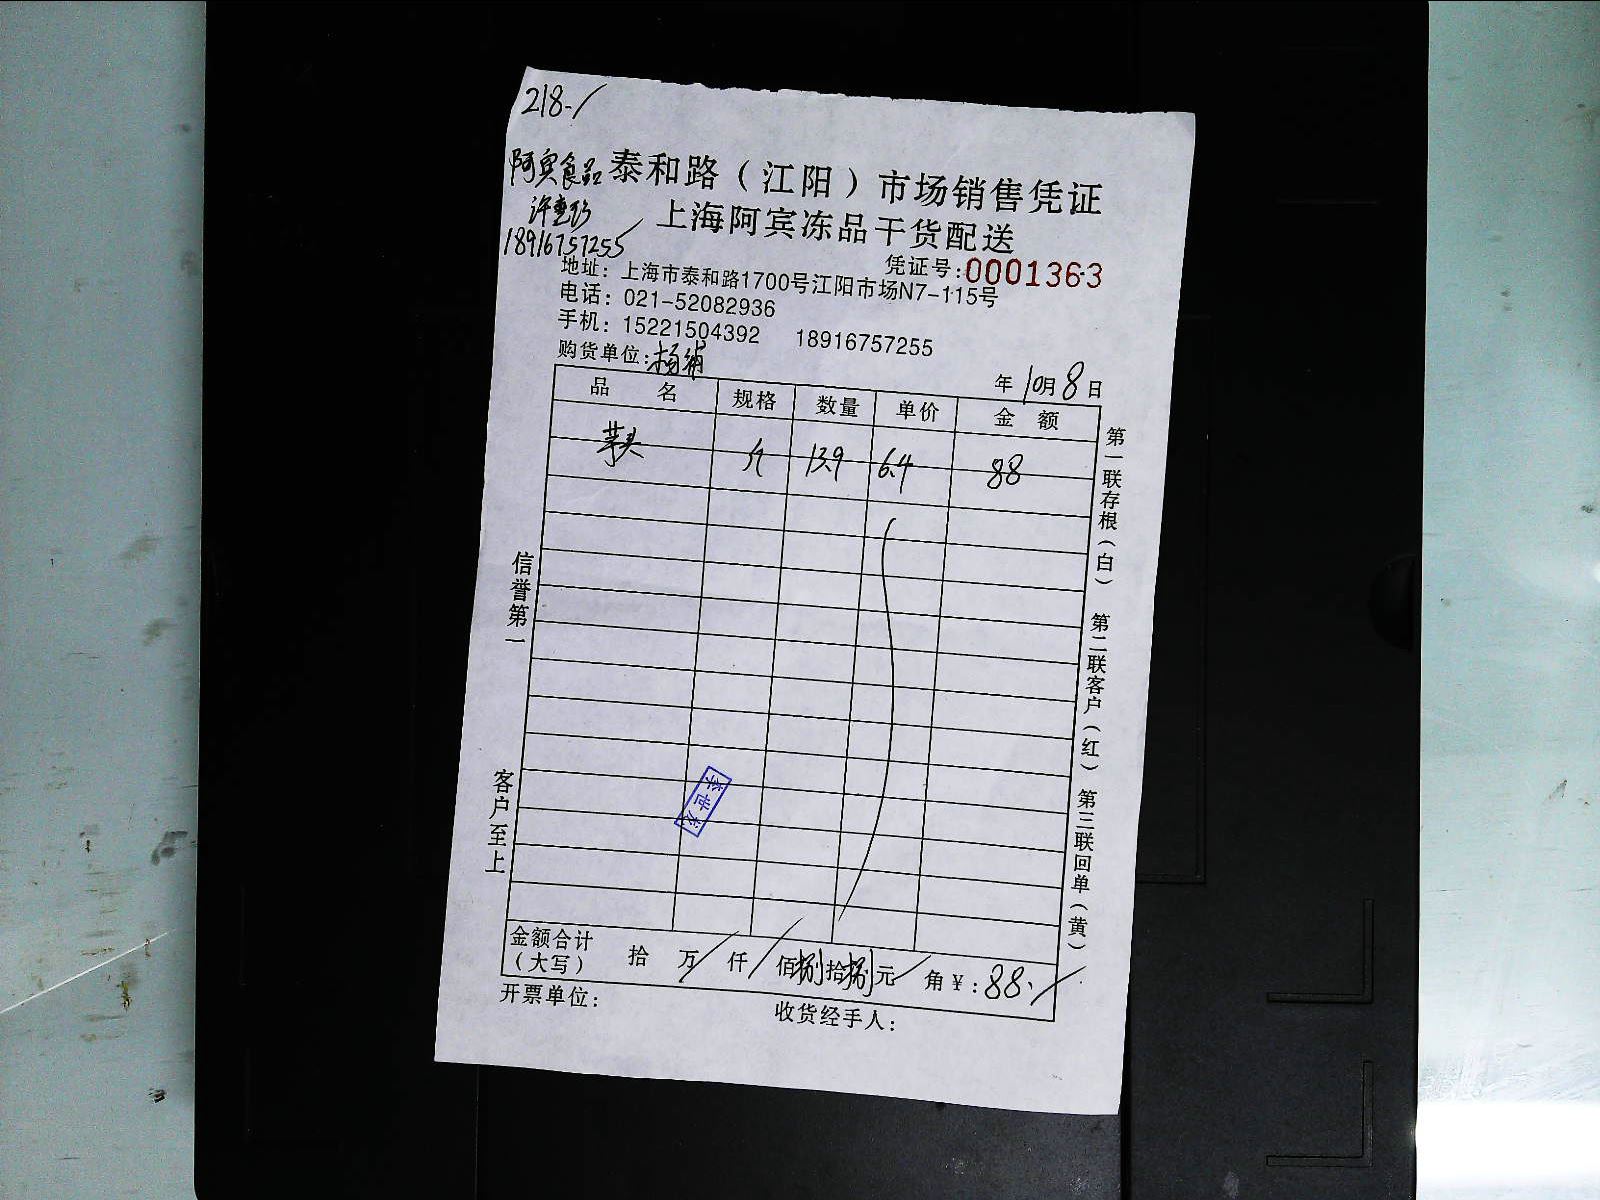 218-/
阿宾食品
泰和路（江阳）市场销售凭证
上海阿宾冻品干货配送
18916757255
凭证号:0001363
地址：上海市泰和路1700号江阳市场N7-115号
电话：021-52082936
手机：15221504392 18916757255
购货单位:杨浦
年 10月 8日
品 名 规格 数量 单价 金 额
芋头 斤 13.9 6.4 88
第一联存根（白） 第二联客户（红） 第三联回单（黄）
信誉第一
客户至上
李世发
金额合计（大写） 拾 万 仟 佰捌拾捌元 角￥:88.
开票单位:
收货经手人: